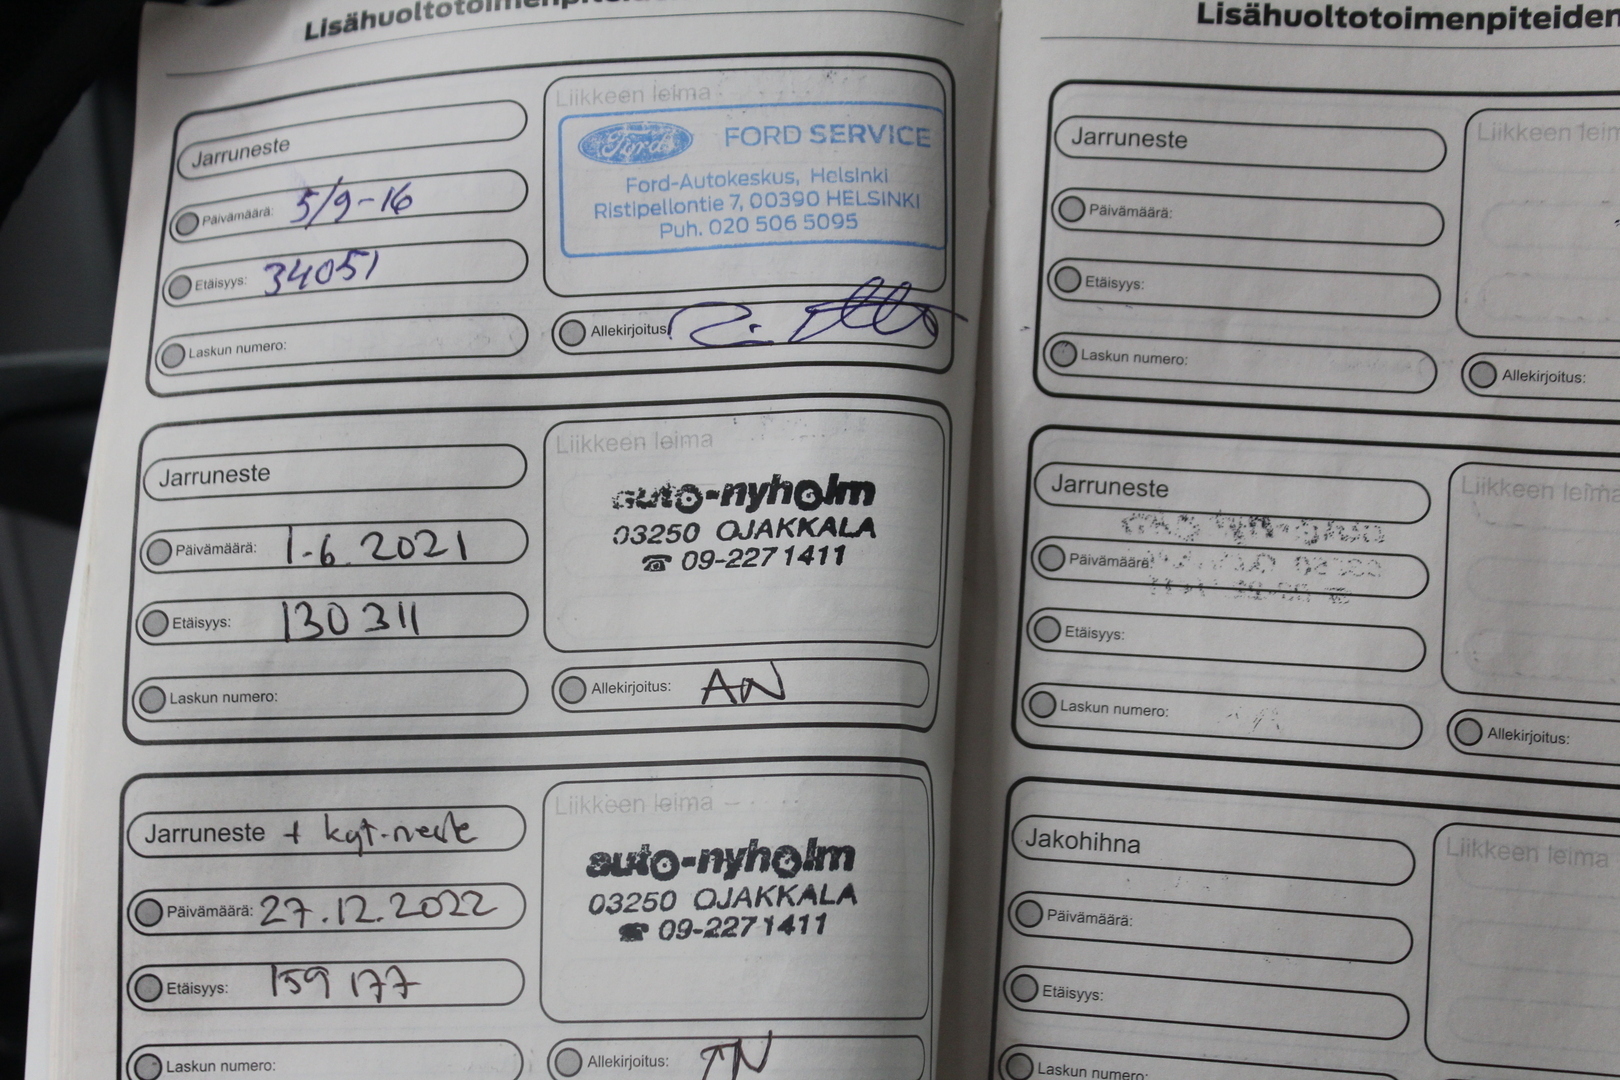 Lisähuoltotoimenpiteiden
Jarruneste
Päivämäärä: 5/9-16
Etäisyys: 34051
Laskun numero:
Liikkeen leima
Ford
FORD SERVICE
Ford-Autokeskus, Helsinki
Ristipellontie 7, 00390 HELSINKI
Puh. 020 506 5095
Allekirjoitus:
Jarruneste
Päivämäärä: 1.6.2021
Etäisyys: 130 311
Laskun numero:
Liikkeen leima
auto-nyholm
03250 OJAKKALA
☎ 09-227 1411
Allekirjoitus: AN
Jarruneste + kyt.neste
Päivämäärä: 27.12.2022
Etäisyys: 159 177
Laskun numero:
Liikkeen leima
auto-nyholm
03250 OJAKKALA
☎ 09-227 1411
Allekirjoitus:
Lisähuoltotoimenpiteiden
Jarruneste
Päivämäärä:
Etäisyys:
Laskun numero:
Liikkeen leim
Allekirjoitus:
Jarruneste
Päivämäärä:
Etäisyys:
Laskun numero:
Liikkeen leima
Allekirjoitus:
Jakohihna
Päivämäärä:
Etäisyys:
Laskun numero:
Liikkeen leima